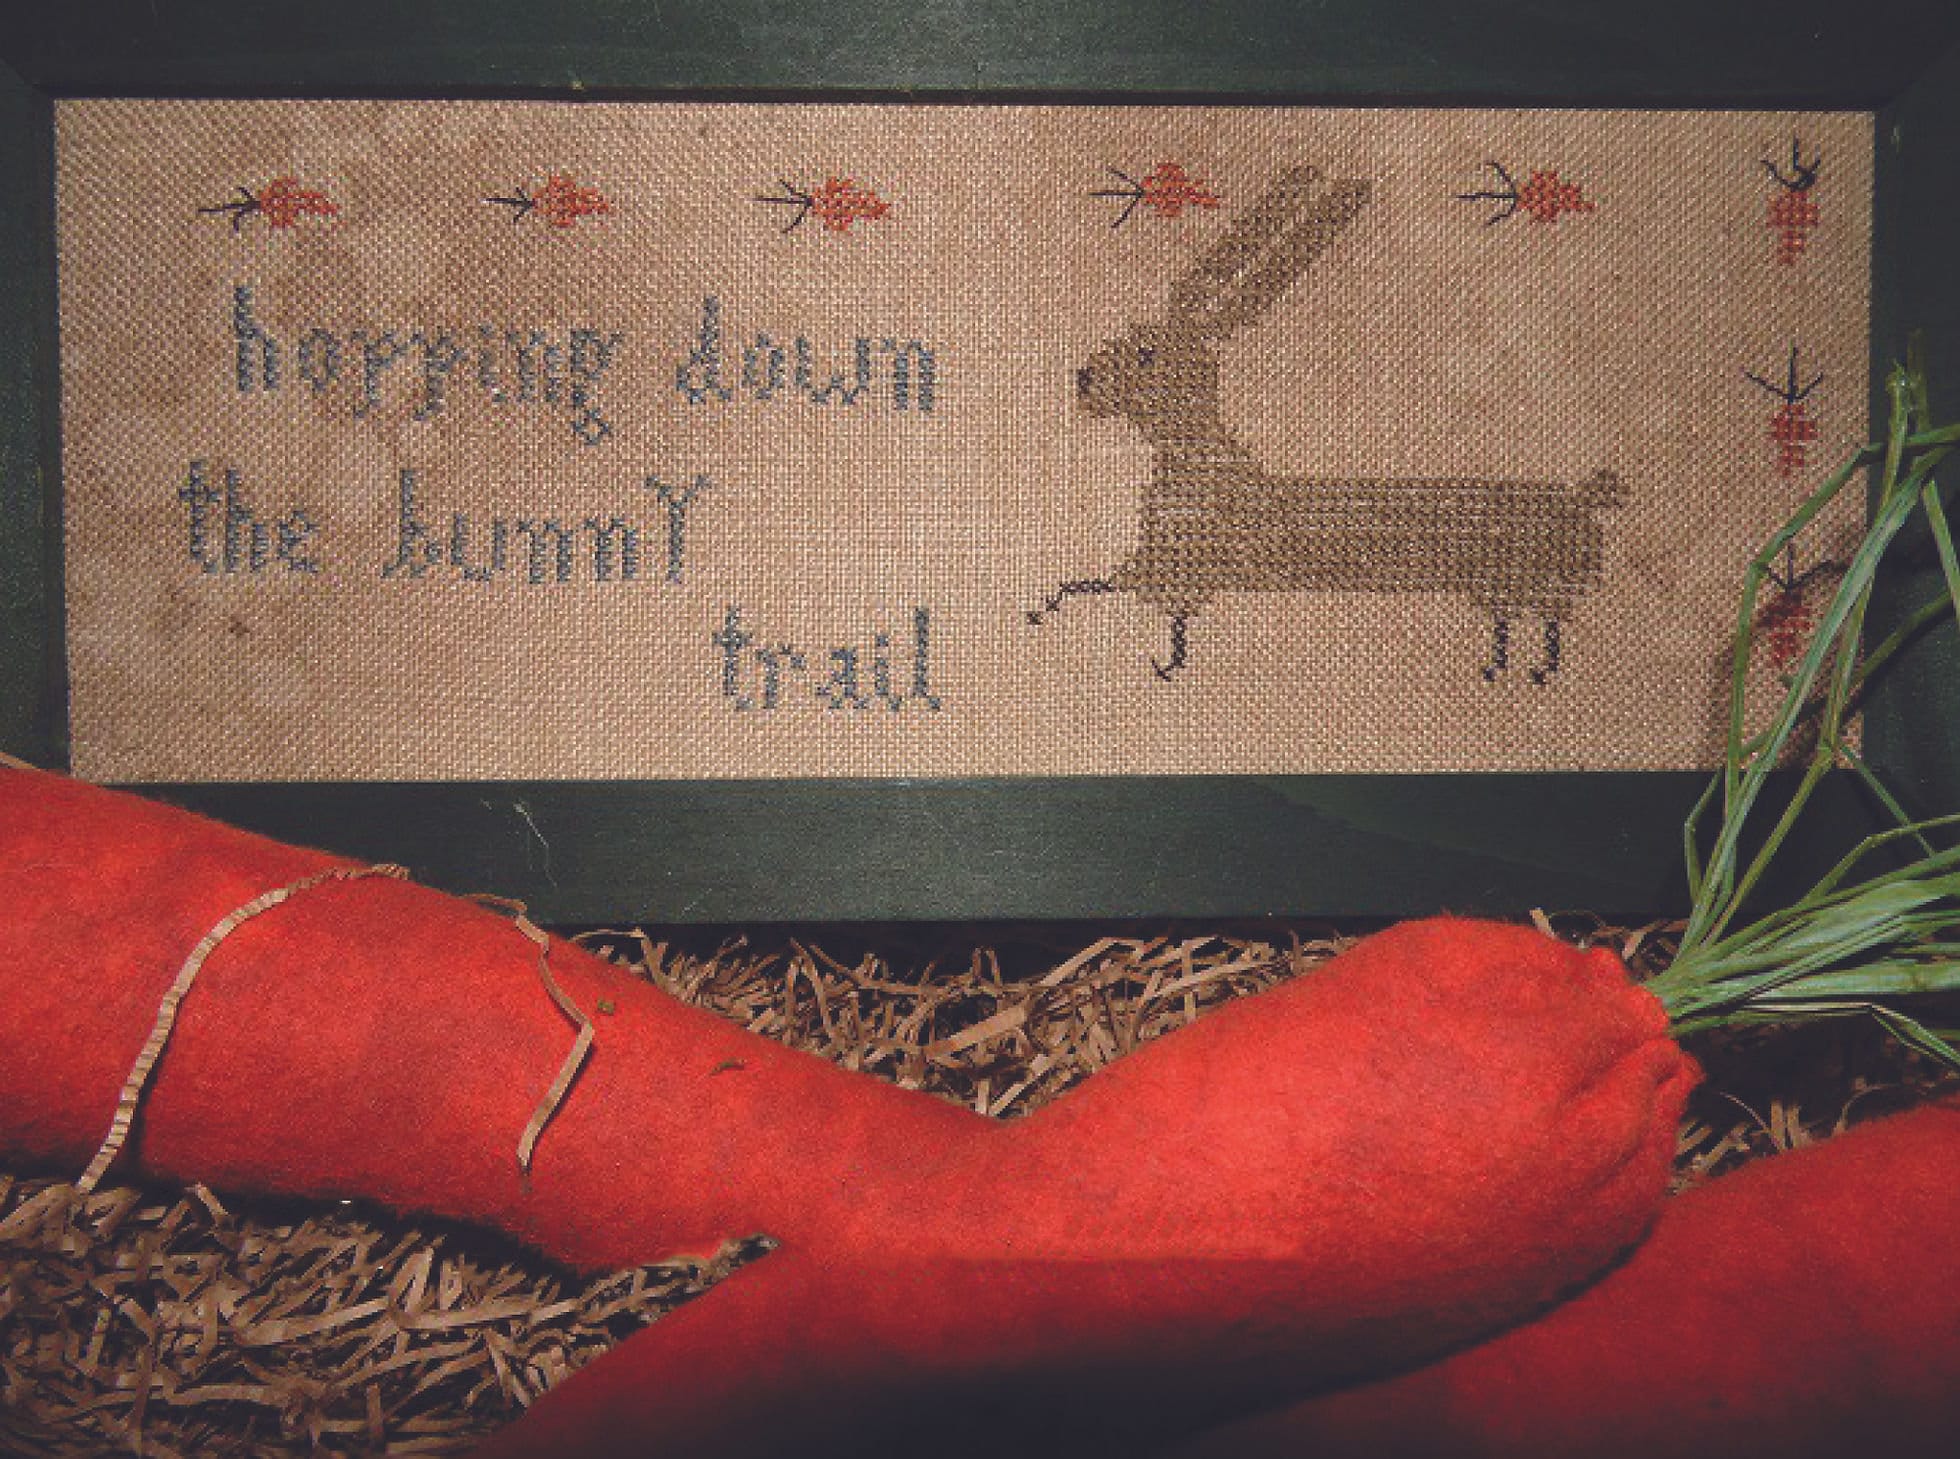 hopping down
the bunnY
trail